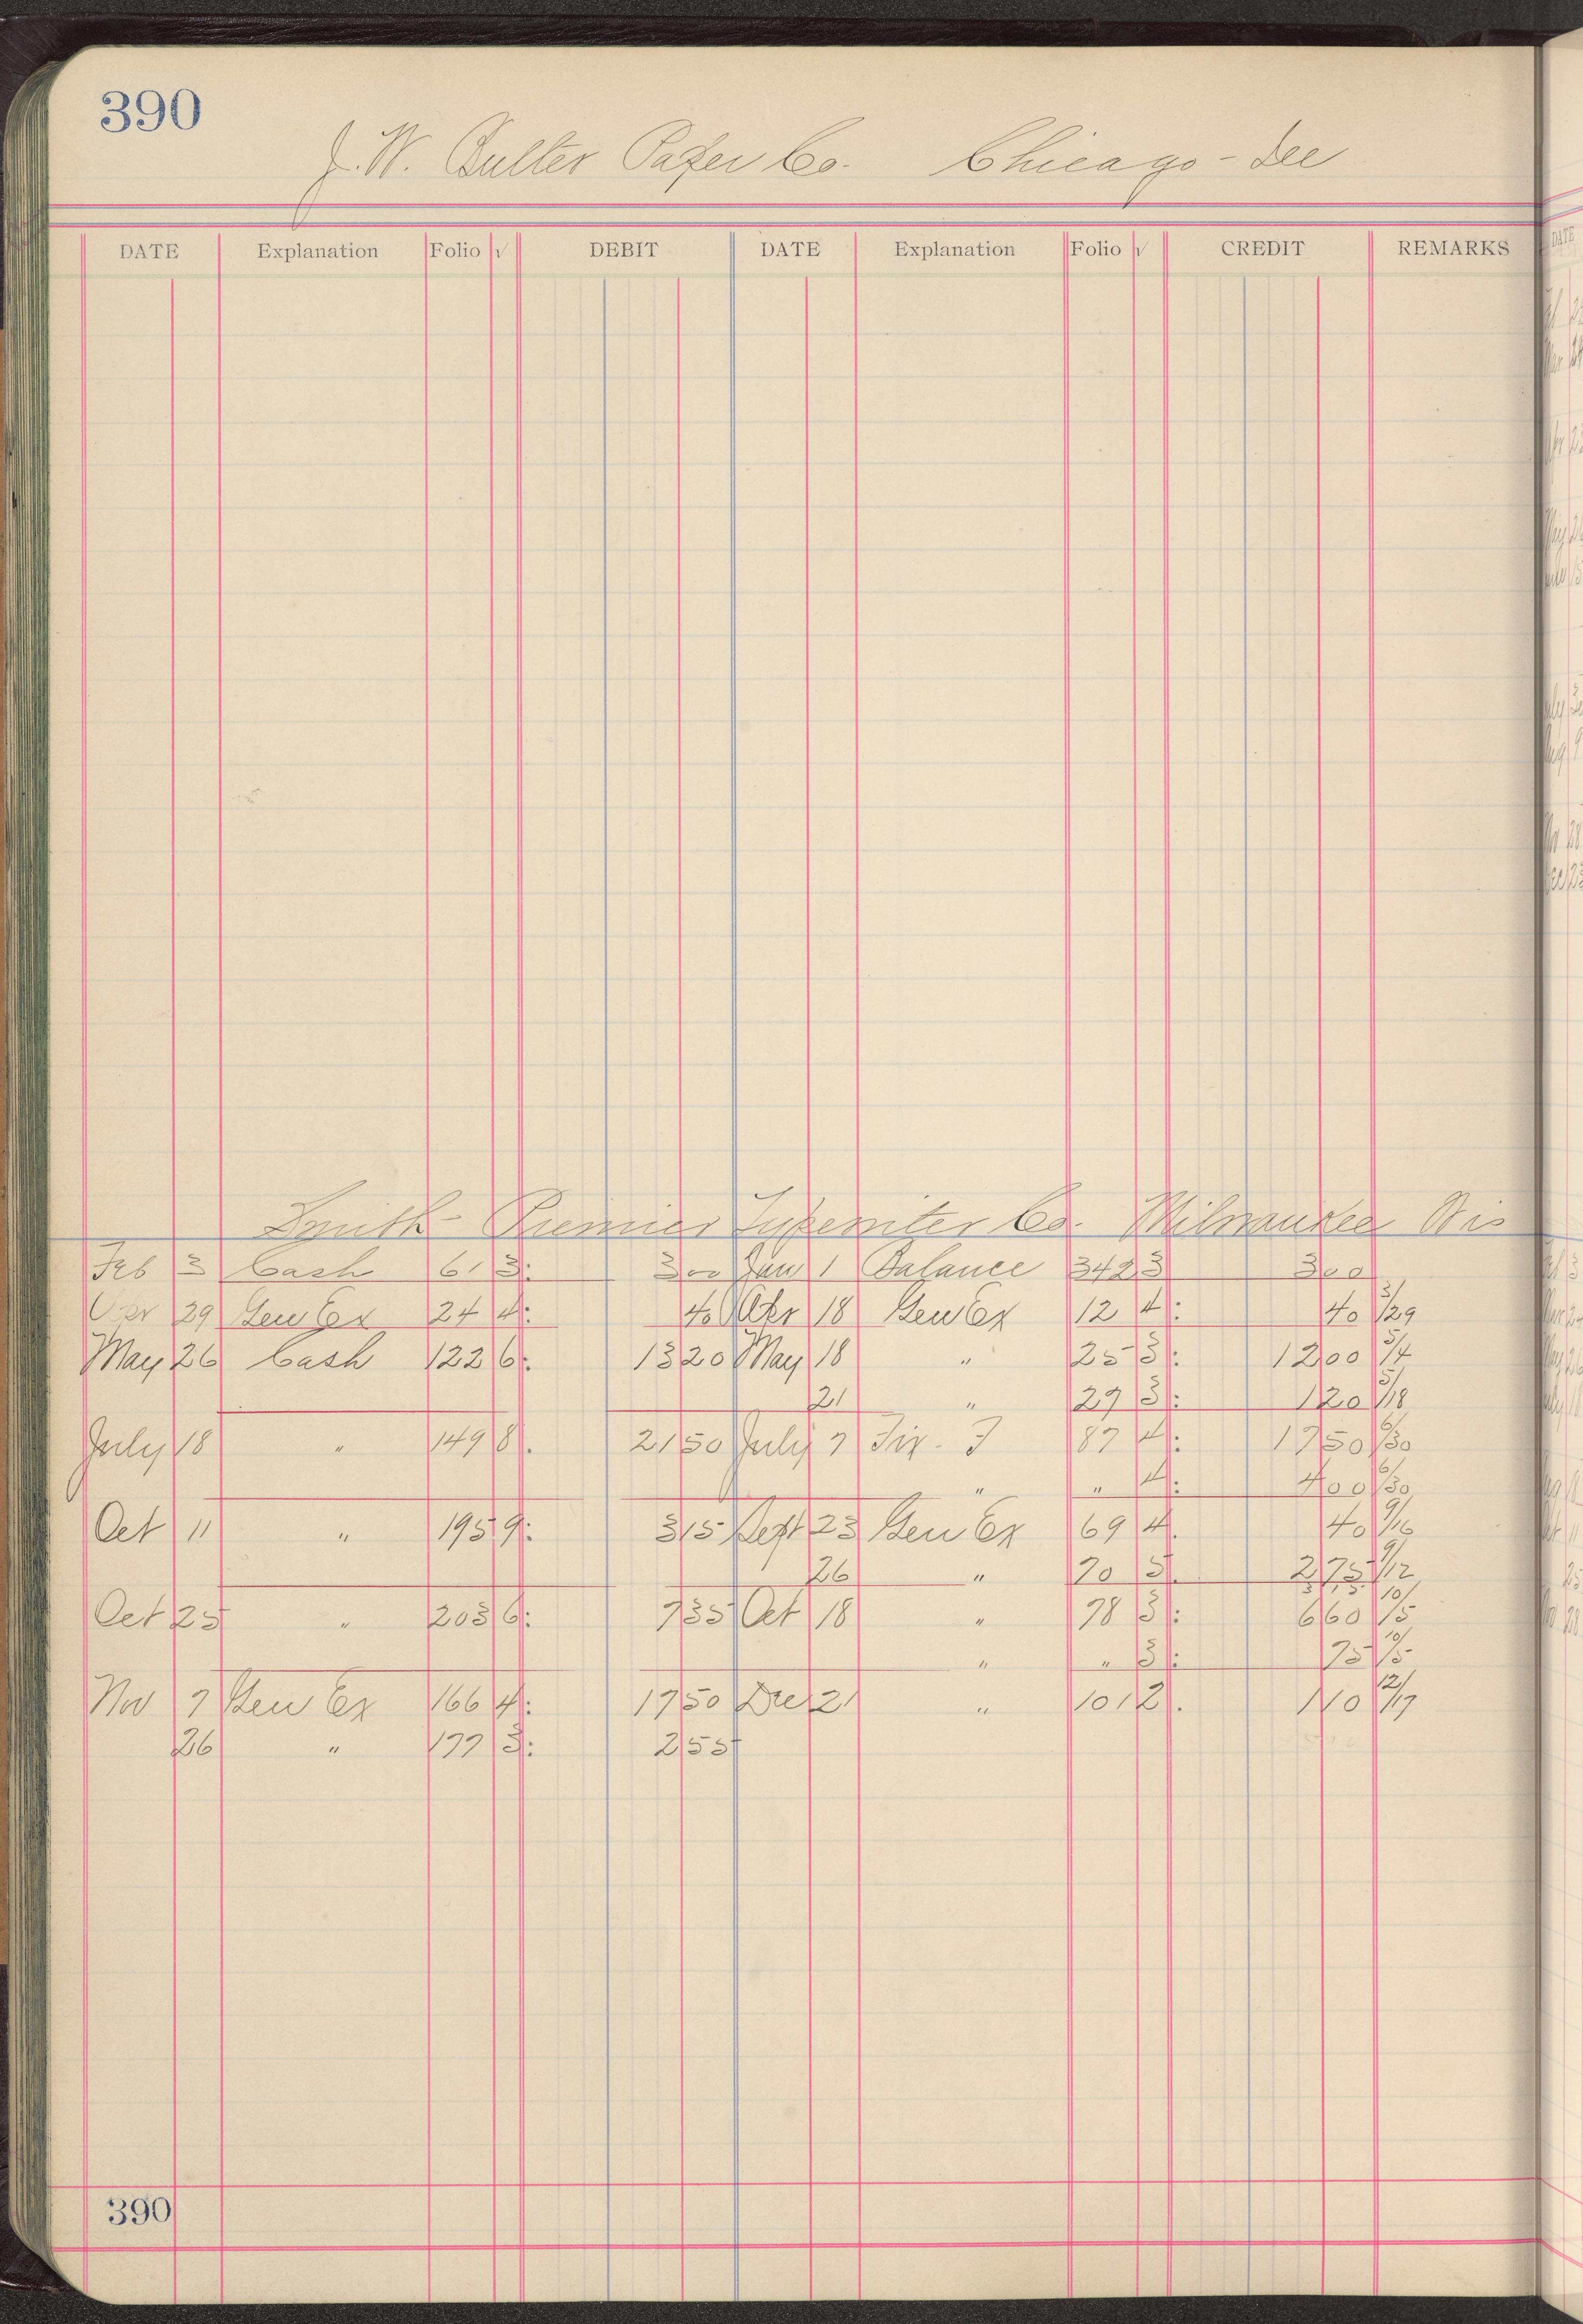 390
J. W. Butler Paper Co. Chicago - Ill
DATE Explanation Folio √ DEBIT DATE Explanation Folio √ CREDIT REMARKS
Smith Premier Typewriter Co. Milwaukee Wis
Feb 3 Cash 61 3: 300 Jan 1 Balance 342 3 300
Apr 29 Gen Ex 24 4: 40 Apr 18 Gen Ex 12 4: 40 3/29
May 26 Cash 122 6: 1320 May 18 " 25 3: 1200 5/4
21 " 29 3: 120 5/18
July 18 " 149 8: 2150 July 7 Fix. F 87 4: 1750 6/30
" " 4: 400 6/30
Oct 11 " 195 9: 315 Sept 23 Gen Ex 69 4. 40 9/16
26 " 70 5. 275 9/12
Oct 25 " 203 6: 735 Oct 18 " 78 3: 660 10/5
" " 3: 75 10/5
Nov 7 Gen Ex 166 4: 1750 Dec 21 " 101 2. 110 12/17
26 " 177 3: 255
390